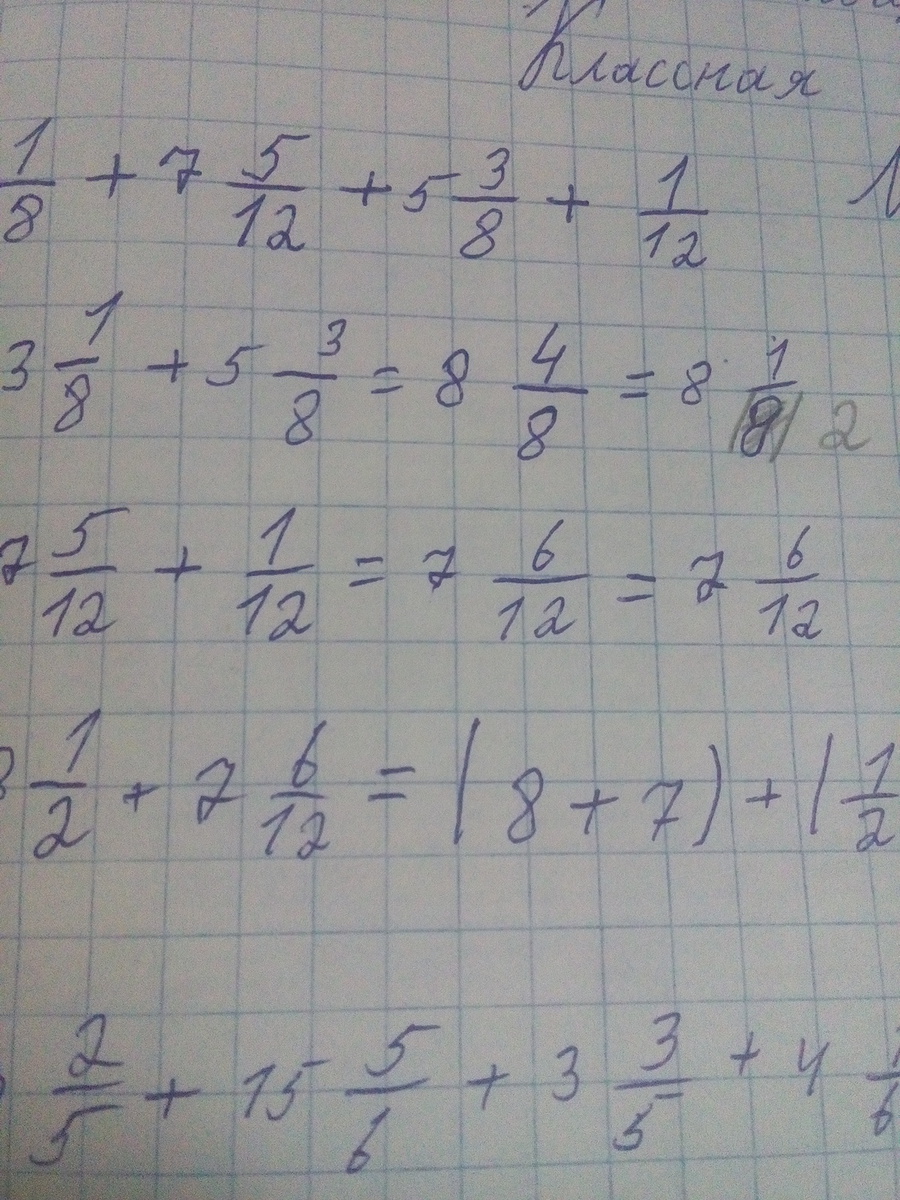 Классная
1/8 + 7 5/12 + 5 3/8 + 1/12
3 1/8 + 5 3/8 = 8 4/8 = 8 1/8 2
7 5/12 + 1/12 = 7 6/12 = 7 6/12
1/2 + 7 6/12 = (8 + 7) + (1/2
2/5 + 15 5/6 + 3 3/5 + 4